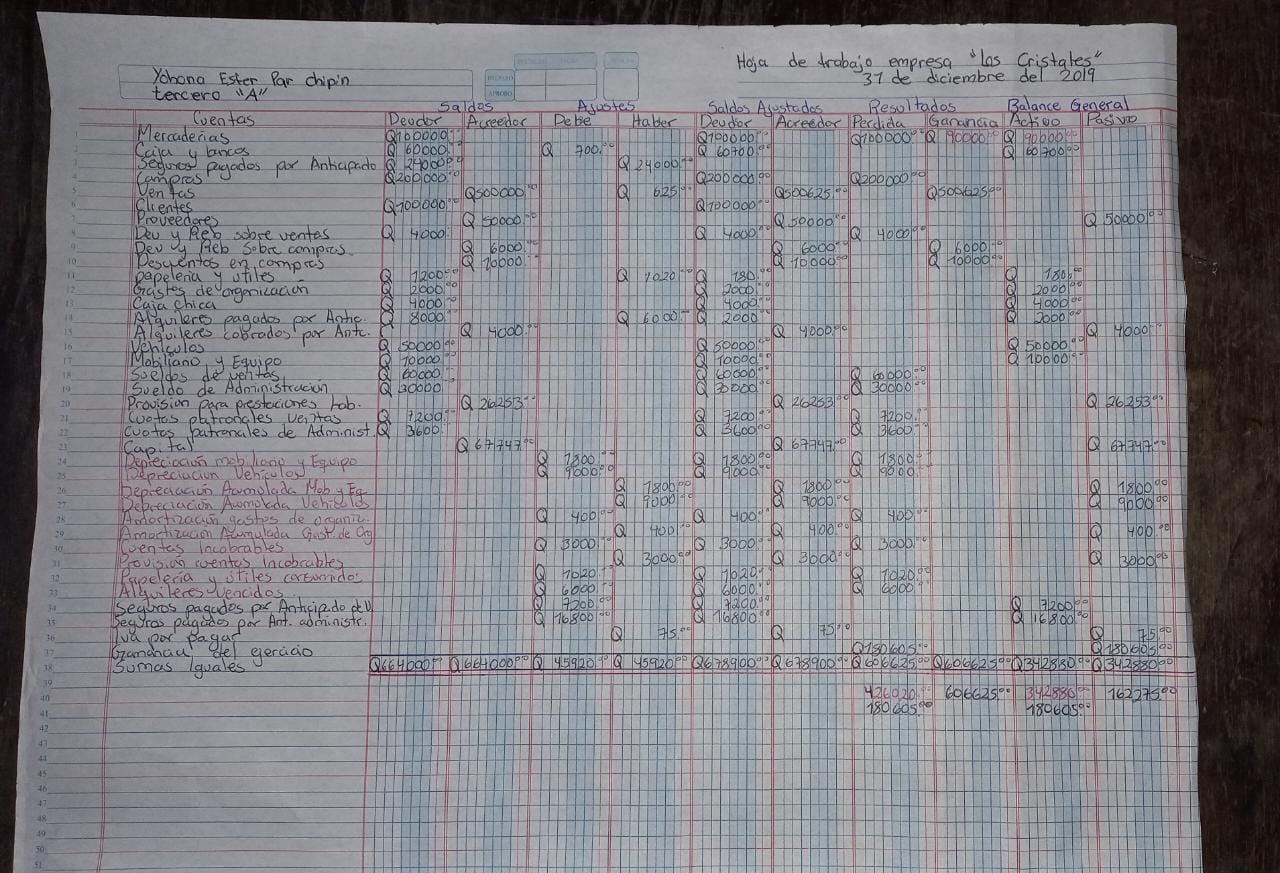 Hoja de trabajo empresa "Los Cristales"
31 de diciembre del 2019
Yohana Ester Par chipin
tercero "A"
Saldos Ajustes Saldos Ajustados Resultados Balance General
Cuentas Deudor Acreedor Debe Haber Deudor Acreedor Perdida Ganancia Activo Pasivo
1 Mercaderias Q100000.00 Q100000.00 Q100000.00 Q 90000.00 Q 90000.00
2 Caja y bancos Q 60000.00 Q 700.00 Q 60700.00 Q 60700.00
3 Seguros pagados por Anticipado Q 24000.00 Q 24000.00
4 Compras Q200000.00 Q200000.00 Q200000.00
5 Ventas Q500000.00 Q 625.00 Q500625.00 Q500625.00
6 Clientes Q100000.00 Q100000.00
7 Proveedores Q 50000.00 Q 50000.00 Q 50000.00
8 Dev y Reb sobre ventas Q 4000.00 Q 4000.00 Q 4000.00
9 Dev y Reb Sobre compras. Q 6000.00 Q 6000.00 Q 6000.00
10 Descuentos en compras Q 10000.00 Q 10000.00 Q 10000.00
11 papeleria y útiles Q 1200.00 Q 1020.00 Q 180.00 Q 180.00
12 Gastos de organización Q 2000.00 Q 2000.00 Q 2000.00
13 Caja chica Q 4000.00 Q 4000.00 Q 4000.00
14 Alquileres pagados por Antic. Q 8000.00 Q 6000.00 Q 2000.00 Q 2000.00
15 Alquileres cobrados por Antc. Q 4000.00 Q 4000.00 Q 4000.00
16 Vehiculos Q 50000.00 Q 50000.00 Q 50000.00
17 Mobiliario y Equipo Q 10000.00 Q 10000.00 Q 10000.00
18 Sueldos de ventas Q 60000.00 Q 60000.00 Q 60000.00
19 Sueldo de Administración Q 30000.00 Q 30000.00 Q 30000.00
20 Provision para prestaciones Lab. Q 26253.00 Q 26253.00 Q 26253.00
21 Cuotas patronales ventas Q 7200.00 Q 7200.00 Q 7200.00
22 Cuotas patronales de Administ. Q 3600.00 Q 3600.00 Q 3600.00
23 Capital Q 67747.00 Q 67747.00 Q 67747.00
24 Depreciación mobiliario y Equipo Q 1800.00 Q 1800.00 Q 1800.00
25 Depreciacion Vehiculos Q 9000.00 Q 9000.00 Q 9000.00
26 Depreciación Acumulada Mob y Eq. Q 1800.00 Q 1800.00 Q 1800.00
27 Depreciación Acumulada Vehiculos Q 9000.00 Q 9000.00 Q 9000.00
28 Amortización gastos de organiz. Q 400.00 Q 400.00 Q 400.00
29 Amortización Acumulada Gast. de Org Q 400.00 Q 400.00 Q 400.00
30 Cuentas Incobrables Q 3000.00 Q 3000.00 Q 3000.00
31 Provisión cuentas Incobrables Q 3000.00 Q 3000.00 Q 3000.00
32 Papeleria y útiles consumidos Q 1020.00 Q 1020.00 Q 1020.00
33 Alquileres Vencidos Q 6000.00 Q 6000.00 Q 6000.00
34 Seguros pagados por Anticipado de V Q 7200.00 Q 7200.00 Q 7200.00
35 Seguros pagados por Ant. administr. Q 16800.00 Q 16800.00 Q 16800.00
36 Iva por pagar Q 75.00 Q 75.00 Q 75.00
37 Ganancia del ejercicio Q180605.00 Q180605.00
38 Sumas Iguales Q664000.00 Q664000.00 Q 45920.00 Q 45920.00 Q678900.00 Q678900.00 Q606625.00 Q606625.00 Q342880.00 Q342880.00
39
40 426020.00 606625.00 342880.00 162275.00
41 180605.00 180605.00
42
43
44
45
46
47
48
49
50
51